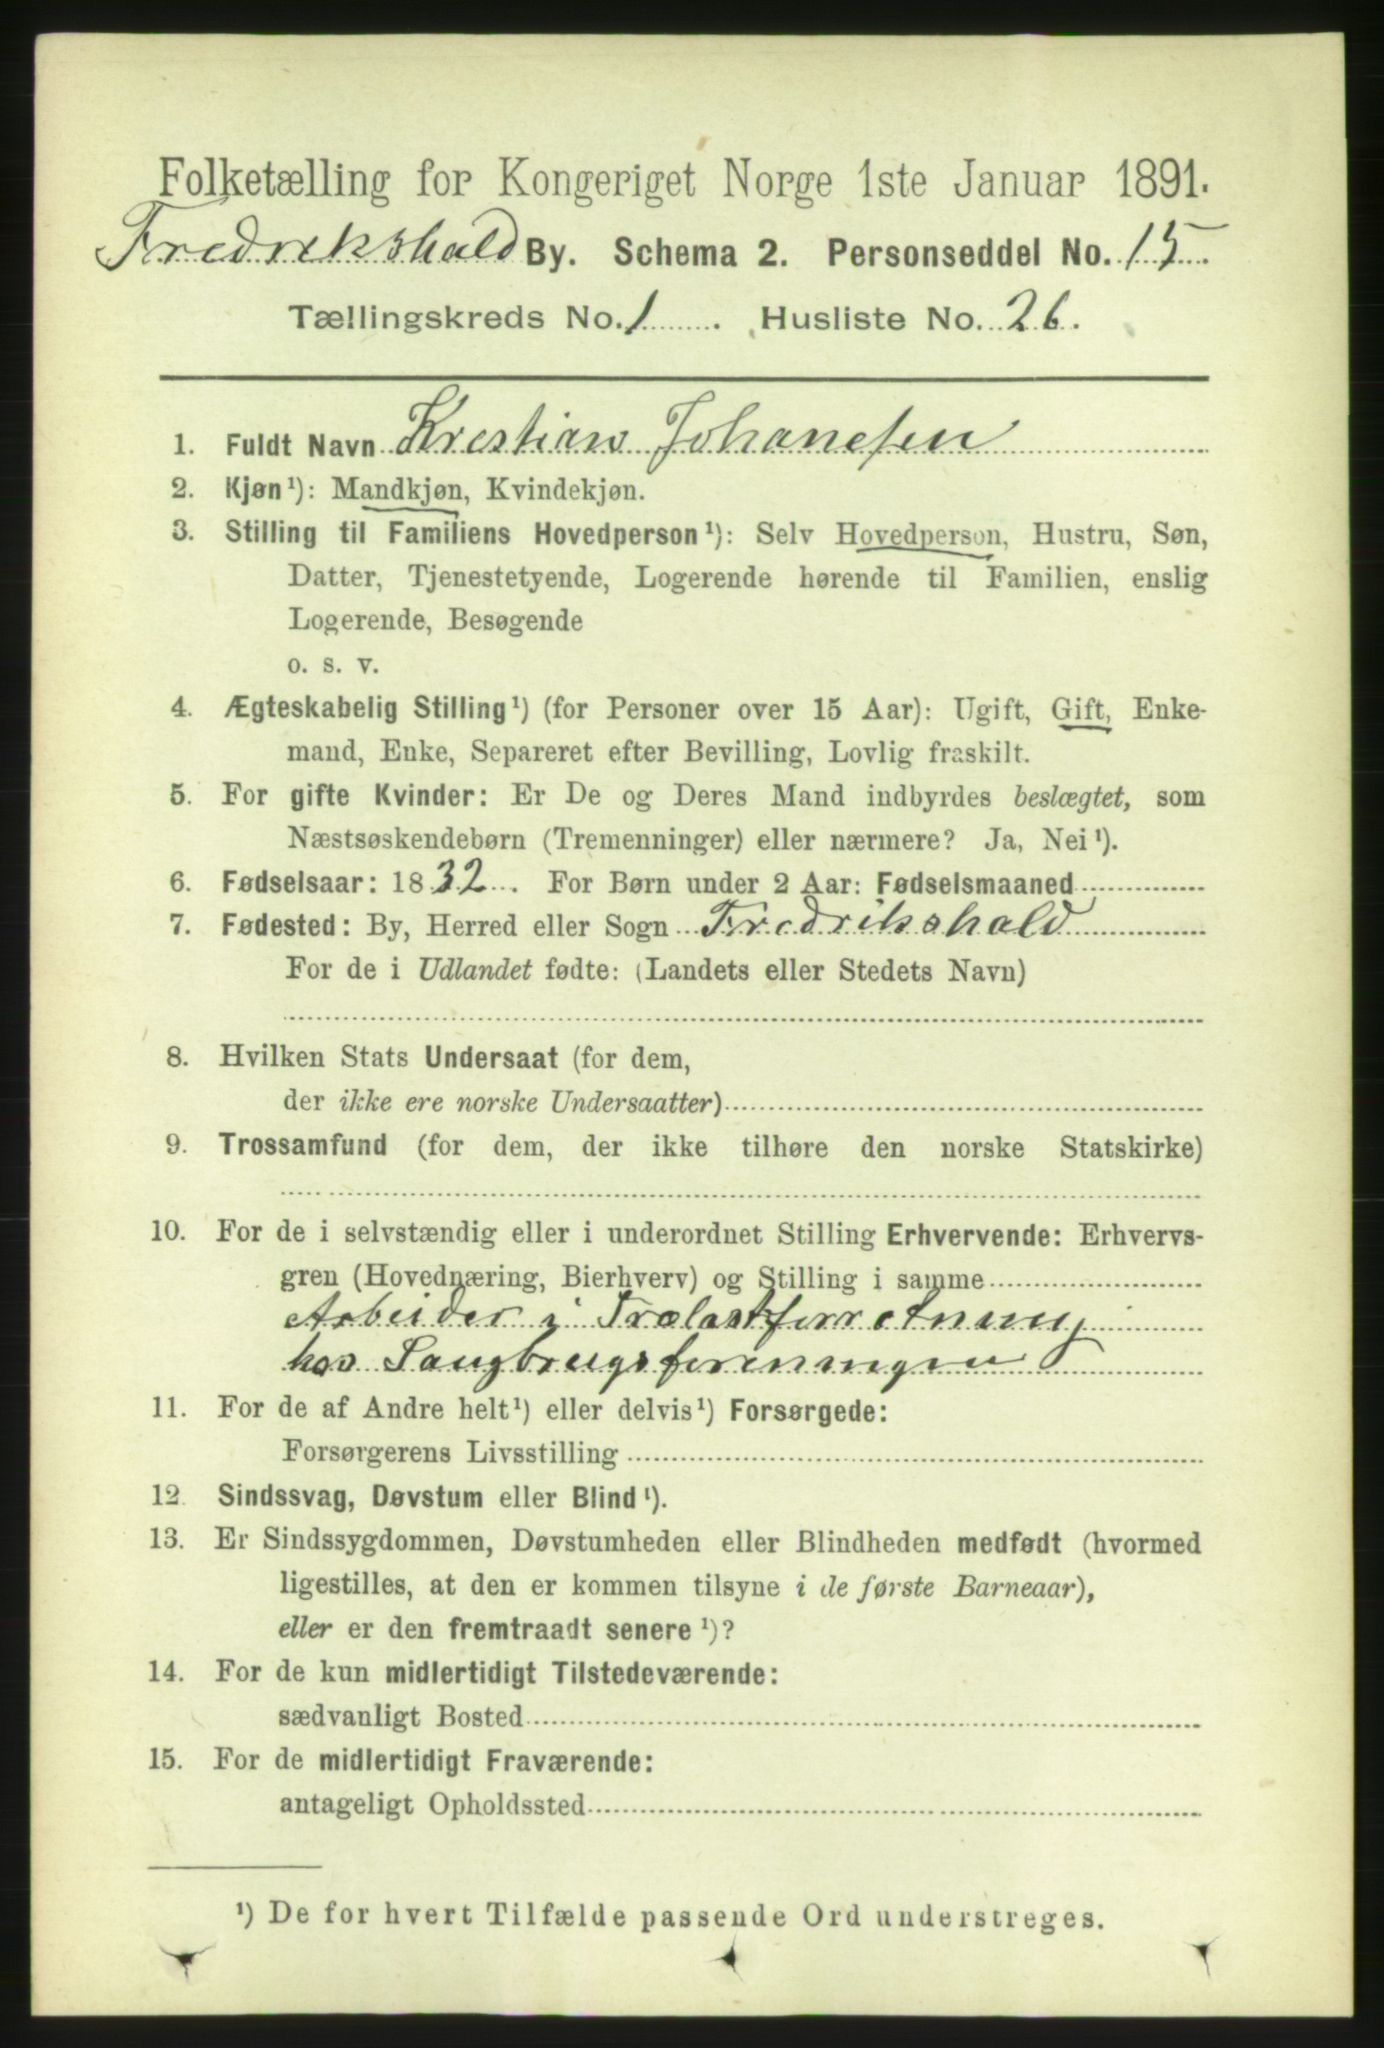 Folketælling for Kongeriget Norge 1ste Januar 1891.
Fredrikshald By. Schema 2. Personseddel No. 15
Tællingskreds No. 1. Husliste No. 26.
1. Fuldt Navn Krestian Johanesen
2. Kjøn¹): Mandkjøn, Kvindekjøn.
3. Stilling til Familiens Hovedperson¹): Selv Hovedperson, Hustru, Søn,
Datter, Tjenestetyende, Logerende hørende til Familien, enslig
Logerende, Besøgende
o. s. v.
4. Ægteskabelig Stilling¹) (for Personer over 15 Aar): Ugift, Gift, Enke-
mand, Enke, Separeret efter Bevilling, Lovlig fraskilt.
5. For gifte Kvinder: Er De og Deres Mand indbyrdes beslægtet, som
Næstsøskendebørn (Tremenninger) eller nærmere? Ja, Nei¹).
6. Fødselsaar: 1832. For Børn under 2 Aar: Fødselsmaaned
7. Fødested: By, Herred eller Sogn Fredrikshald
For de i Udlandet fødte: (Landets eller Stedets Navn)
8. Hvilken Stats Undersaat (for dem,
der ikke ere norske Undersaatter)
9. Trossamfund (for dem, der ikke tilhøre den norske Statskirke)
10. For de i selvstændig eller i underordnet Stilling Erhvervende: Erhvervs-
gren (Hovednæring, Bierhverv) og Stilling i samme
Arbeider i Trælastforretning
hos Saugbrugsforeningen
11. For de af Andre helt¹) eller delvis¹) Forsørgede:
Forsørgerens Livsstilling
12. Sindssvag, Døvstum eller Blind¹).
13. Er Sindssygdommen, Døvstumheden eller Blindheden medfødt (hvormed
ligestilles, at den er kommen tilsyne i de første Barneaar),
eller er den fremtraadt senere¹)?
14. For de kun midlertidigt Tilstedeværende:
sædvanligt Bosted
15. For de midlertidigt Fraværende:
antageligt Opholdssted
¹) De for hvert Tilfælde passende Ord understreges.